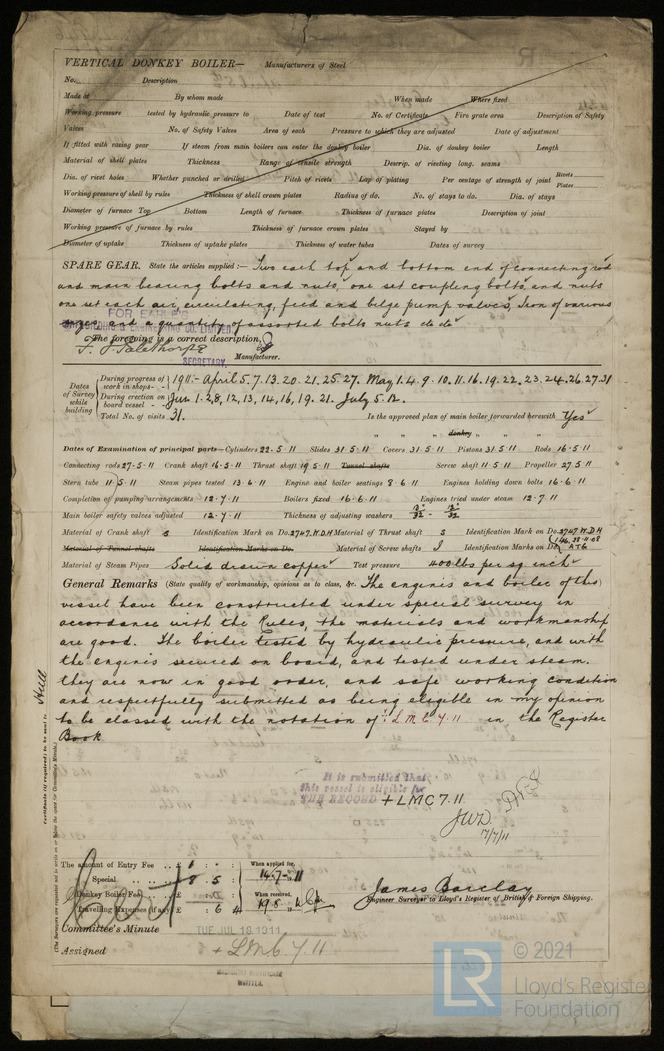 VERTICAL DONKEY BOILER— Manufacturers of Steel
No. Description
Made at By whom made When made Where fixed
Working pressure tested by hydraulic pressure to Date of test No. of Certificate Fire grate area Description of Safety
Valves No. of Safety Valves Area of each Pressure to which they are adjusted Date of adjustment
If fitted with easing gear If steam from main boilers can enter the donkey boiler Dia. of donkey boiler Length
Material of shell plates Thickness Range of tensile strength Descrip. of riveting long. seams
Dia. of rivet holes Whether punched or drilled Pitch of rivets Lap of plating Per centage of strength of joint Rivets Plates
Working pressure of shell by rules Thickness of shell crown plates Radius of do. No. of stays to do. Dia. of stays
Diameter of furnace Top Bottom Length of furnace Thickness of furnace plates Description of joint
Working pressure of furnace by rules Thickness of furnace crown plates Stayed by
Diameter of uptake Thickness of uptake plates Thickness of water tubes Dates of survey
SPARE GEAR. State the articles supplied:— Two each top and bottom end of connecting rod
and main bearing bolts and nuts, one set coupling bolts, and nuts
one set each air, circulating, feed and bilge pump valves, Iron of various
sizes, and a quantity of assorted bolts nuts &c &c
FOR EARLE'S
SHIPBUILDING & ENGINEERING CO. LIMITED
The foregoing is a correct description,
SECRETARY. Manufacturer.
Dates of Survey while building
During progress of work in shops - - 1911:- April 5. 7. 13. 20. 21. 25. 27. May 1. 4. 9. 10. 11. 16. 19. 22. 23. 24. 26. 27. 31
During erection on board vessel - - Jun 1. 2. 8, 12, 13, 14, 16, 19. 21. July 5. 12.
Total No. of visits 31. Is the approved plan of main boiler forwarded herewith Yes
" " " donkey " " "
Dates of Examination of principal parts—Cylinders 22.5.11 Slides 31.5.11 Covers 31.5.11 Pistons 31.5.11 Rods 16.5.11
Connecting rods 27.5.11 Crank shaft 16.5.11 Thrust shaft 19.5.11 Tunnel shafts Screw shaft 11.5.11 Propeller 27.5.11
Stern tube 11.5.11 Steam pipes tested 13.6.11 Engine and boiler seatings 8.6.11 Engines holding down bolts 16.6.11
Completion of pumping arrangements 12.7.11 Boilers fixed 16.6.11 Engines tried under steam 12.7.11
Main boiler safety valves adjusted 12.7.11 Thickness of adjusting washers
Material of Crank shaft S Identification Mark on Do. 2747.W.D.H Material of Thrust shaft S Identification Mark on Do. 2747.W.D.H
Material of Tunnel shafts Identification Marks on Do. Material of Screw shafts Identification Marks on Do.
Material of Steam Pipes Solid drawn copper Test pressure 400 lbs per sq inch
General Remarks (State quality of workmanship, opinions as to class, &c. The engines and boiler of this
vessel have been constructed under special survey in
accordance with the Rules, the materials and workmanship
are good. The boiler tested by hydraulic pressure, and with
the engines secured on board, and tested under steam.
they are now in good order, and safe working condition
and respectfully submitted as being eligible in my opinion
to be classed with the notation of L M C 7. 11 in the Register
Book
Certificate (if required) to be sent to Hull
It is submitted that
this vessel is eligible for
THE RECORD + LMC 7.11
JWD
7/7/11
The amount of Entry Fee . . £ 1 : - : When applied for,
Special . . . . £ 8 : 5 : 14.7.11
Donkey Boiler Fee . . £ : : When received,
Travelling Expenses (if any) £ : 6 4
James Barclay
Engineer Surveyor to Lloyd's Register of British & Foreign Shipping.
Committee's Minute TUE JUL 18 1911
Assigned + L M C 7. 11
WRITTEN.
LR
© 2021
Lloyd's Register
Foundation